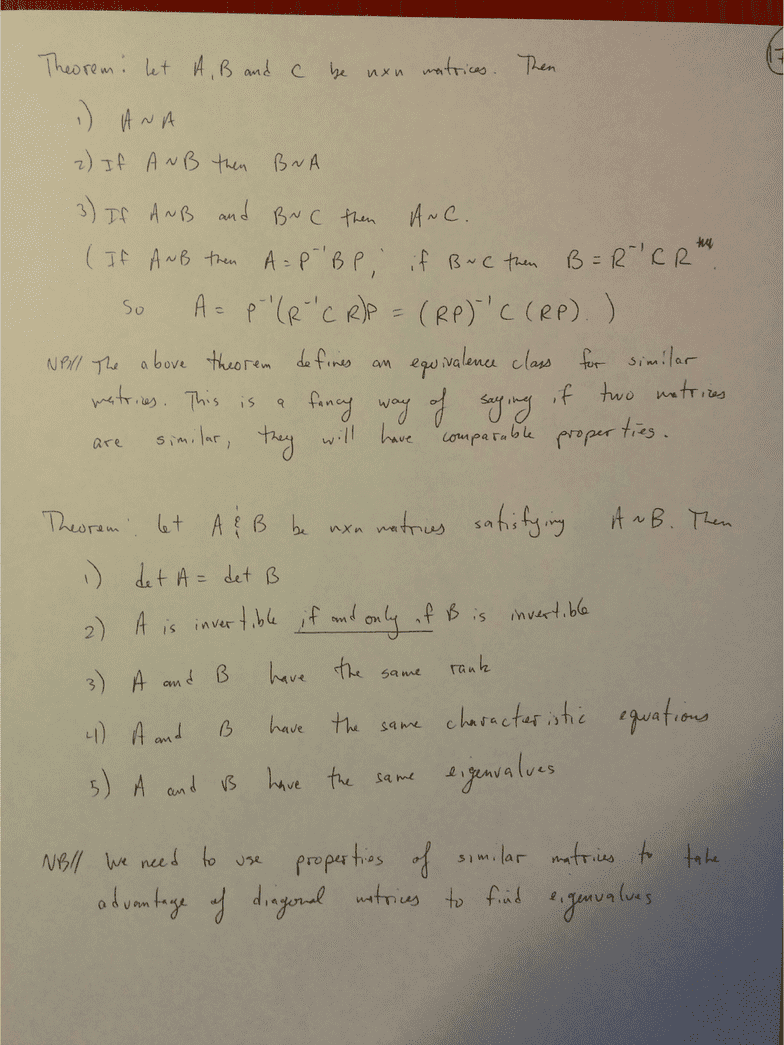 17
Theorem: Let A, B and C be nxn matrices. Then
1) A ~ A
2) If A ~ B then B ~ A
3) If A ~ B and B ~ C then A ~ C.
( If A ~ B then A = P⁻¹ B P, if B ~ C then B = R⁻¹ C R .
So A = P⁻¹(R⁻¹ C R)P = (RP)⁻¹ C (RP). )
NB// The above theorem defines an equivalence class for similar
matrices. This is a fancy way of saying if two matrices
are similar, they will have comparable properties.
Theorem: Let A & B be nxn matrices satisfying A ~ B. Then
1) det A = det B
2) A is invertible if and only if B is invertible
3) A and B have the same rank
4) A and B have the same characteristic equations
5) A and B have the same eigenvalues
NB// We need to use properties of similar matrices to take
advantage of diagonal matrices to find eigenvalues